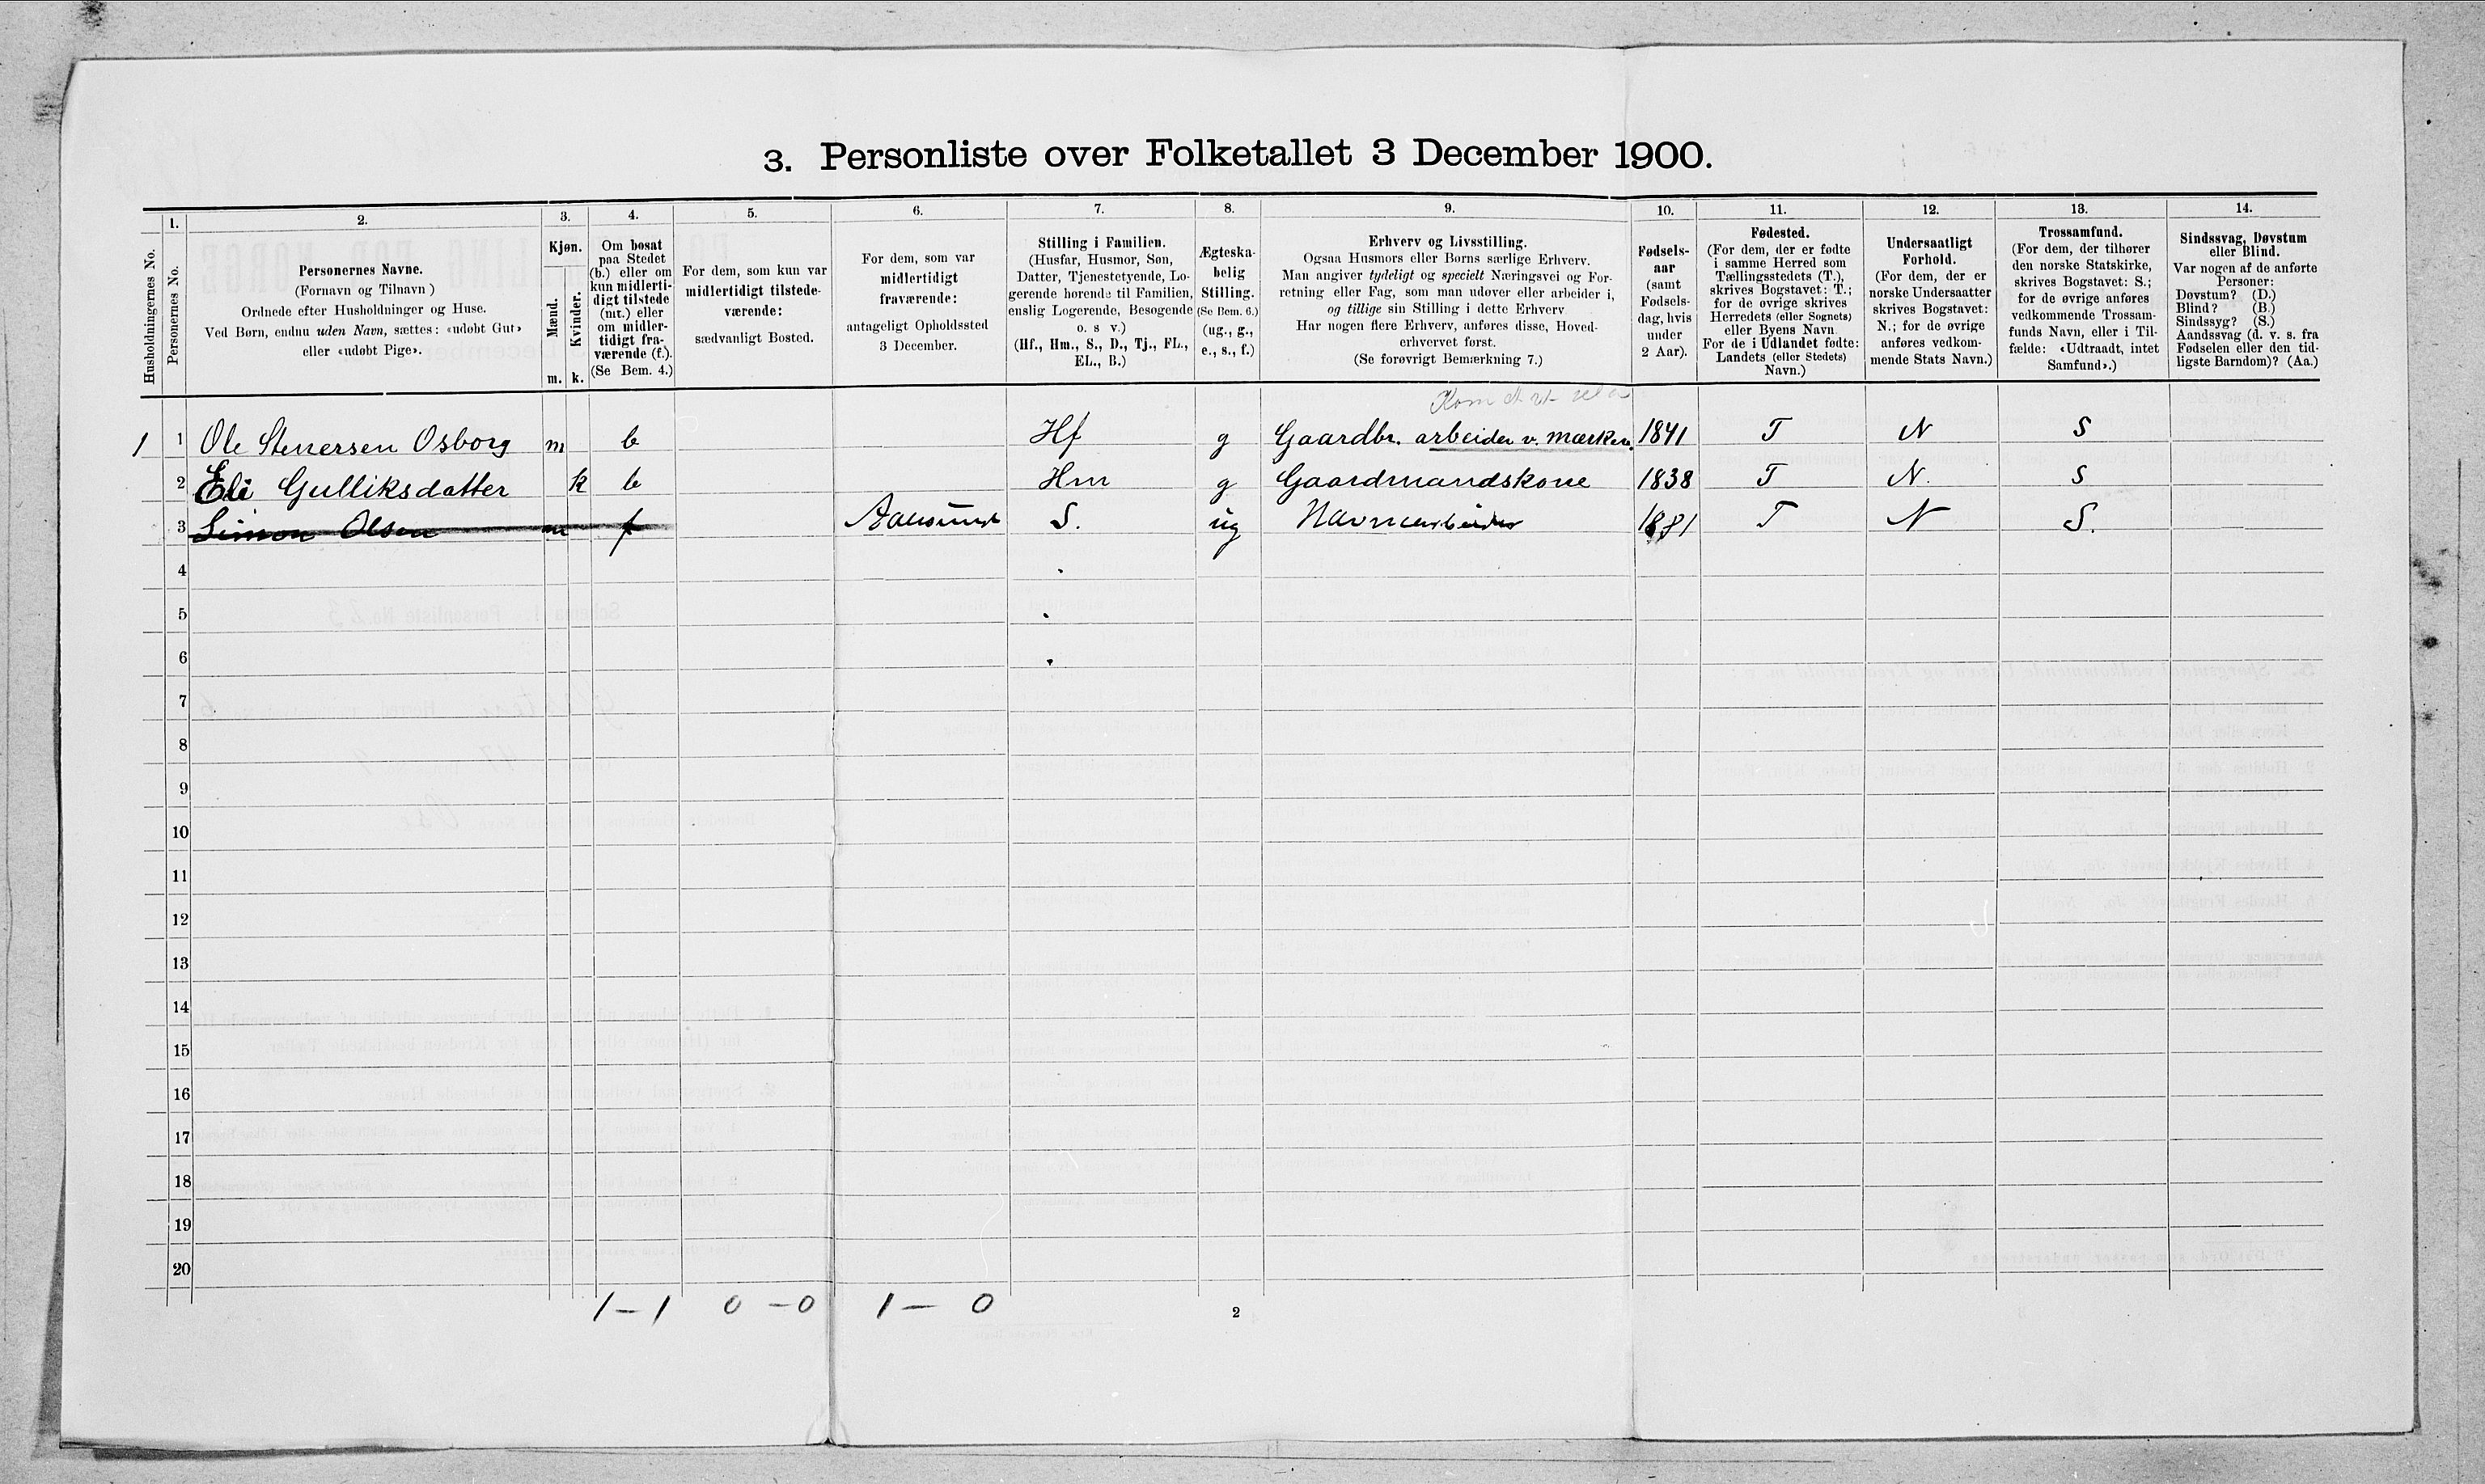 3. Personliste over Folketallet 3 December 1900.
Husholdningernes No.
1.
Personernes No.
2.
Personernes Navne.
(Fornavn og Tilnavn )
Ordnede efter Husholdninger og Huse.
Ved Børn, endnu uden Navn, sættes: «udøbt Gut»
eller «udøbt Pige».
3.
Kjøn.
Mænd.
Kvinder.
m. k.
4.
Om bosat
paa Stedet
(b.) eller om
kun midlerti-
digt tilstede
(mt.) eller
om midler-
tidigt fra-
værende (f.).
(Se Bem. 4.)
5.
For dem, som kun var
midlertidigt tilstede-
værende:
sædvanligt Bosted.
6.
For dem, som var
midlertidigt
fraværende:
antageligt Opholdssted
3 December.
7.
Stilling i Familien.
(Husfar, Husmor, Søn,
Datter, Tjenestetyende, Lo-
gerende hørende til Familien,
enslig Logerende, Besøgende
o. s v.)
(Hf., Hm., S., D., Tj., FL.,
EL., B.)
8.
Ægteska-
belig
Stilling.
(Se Bem. 6.)
(ug., g.,
e., s., f.)
9.
Erhverv og Livsstilling.
Ogsaa Husmors eller Børns særlige Erhverv.
Man angiver tydeligt og specielt Næringsvei og For-
retning eller Fag, som man udøver eller arbeider i,
og tillige sin Stilling i dette Erhverv
Har nogen flere Erhverv, anføres disse, Hoved-
erhvervet først.
(Se forøvrigt Bemærkning 7.)
10.
Fødsels-
aar
(samt
Fødsels-
dag, hvis
under
2 Aar).
11.
Fødested.
(For dem, der er fødte
i samme Herred som
Tællingsstedets (T.),
skrives Bogstavet: T.;
for de øvrige skrives
Herredets (eller Sognets)
eller Byens Navn
For de i Udlandet fødte:
Landets (eller Stedets)
Navn.)
12.
Undersaatligt
Forhold.
(For dem, der er
norske Undersaatter
skrives Bogstavet:
N.; for de øvrige
anføres vedkom-
mende Stats Navn.)
13.
Trossamfund.
(For dem, der tilhører
den norske Statskirke,
skrives Bogstavet: S.;
for de øvrige anføres
vedkommende Trossam-
funds Navn, eller i Til-
fælde: «Udtraadt, intet
Samfund».)
14.
Sindssvag, Døvstum
eller Blind.
Var nogen af de anførte
Personer:
Døvstum? (D.)
Blind? (B.)
Sindssyg? (S.)
Aandssvag (d. v. s. fra
Fødselen eller den tid-
ligste Barndom)? (Aa.)
1 1 Ole Stenersen Osborg m b Hf g Gaardbr. arbeider v. 1841 T N S
2 Eli Gulliksdatter k b Hm g Gaardmandskone 1838 T N. S
3 Simon Olsen m f Aalesund S. ug Havnearbeider 1881 T N S.
4
5
6
7
8
9
10
11
12
13
14
15
16
17
18
19
20
1 - 1 0 - 0 1 - 0
2